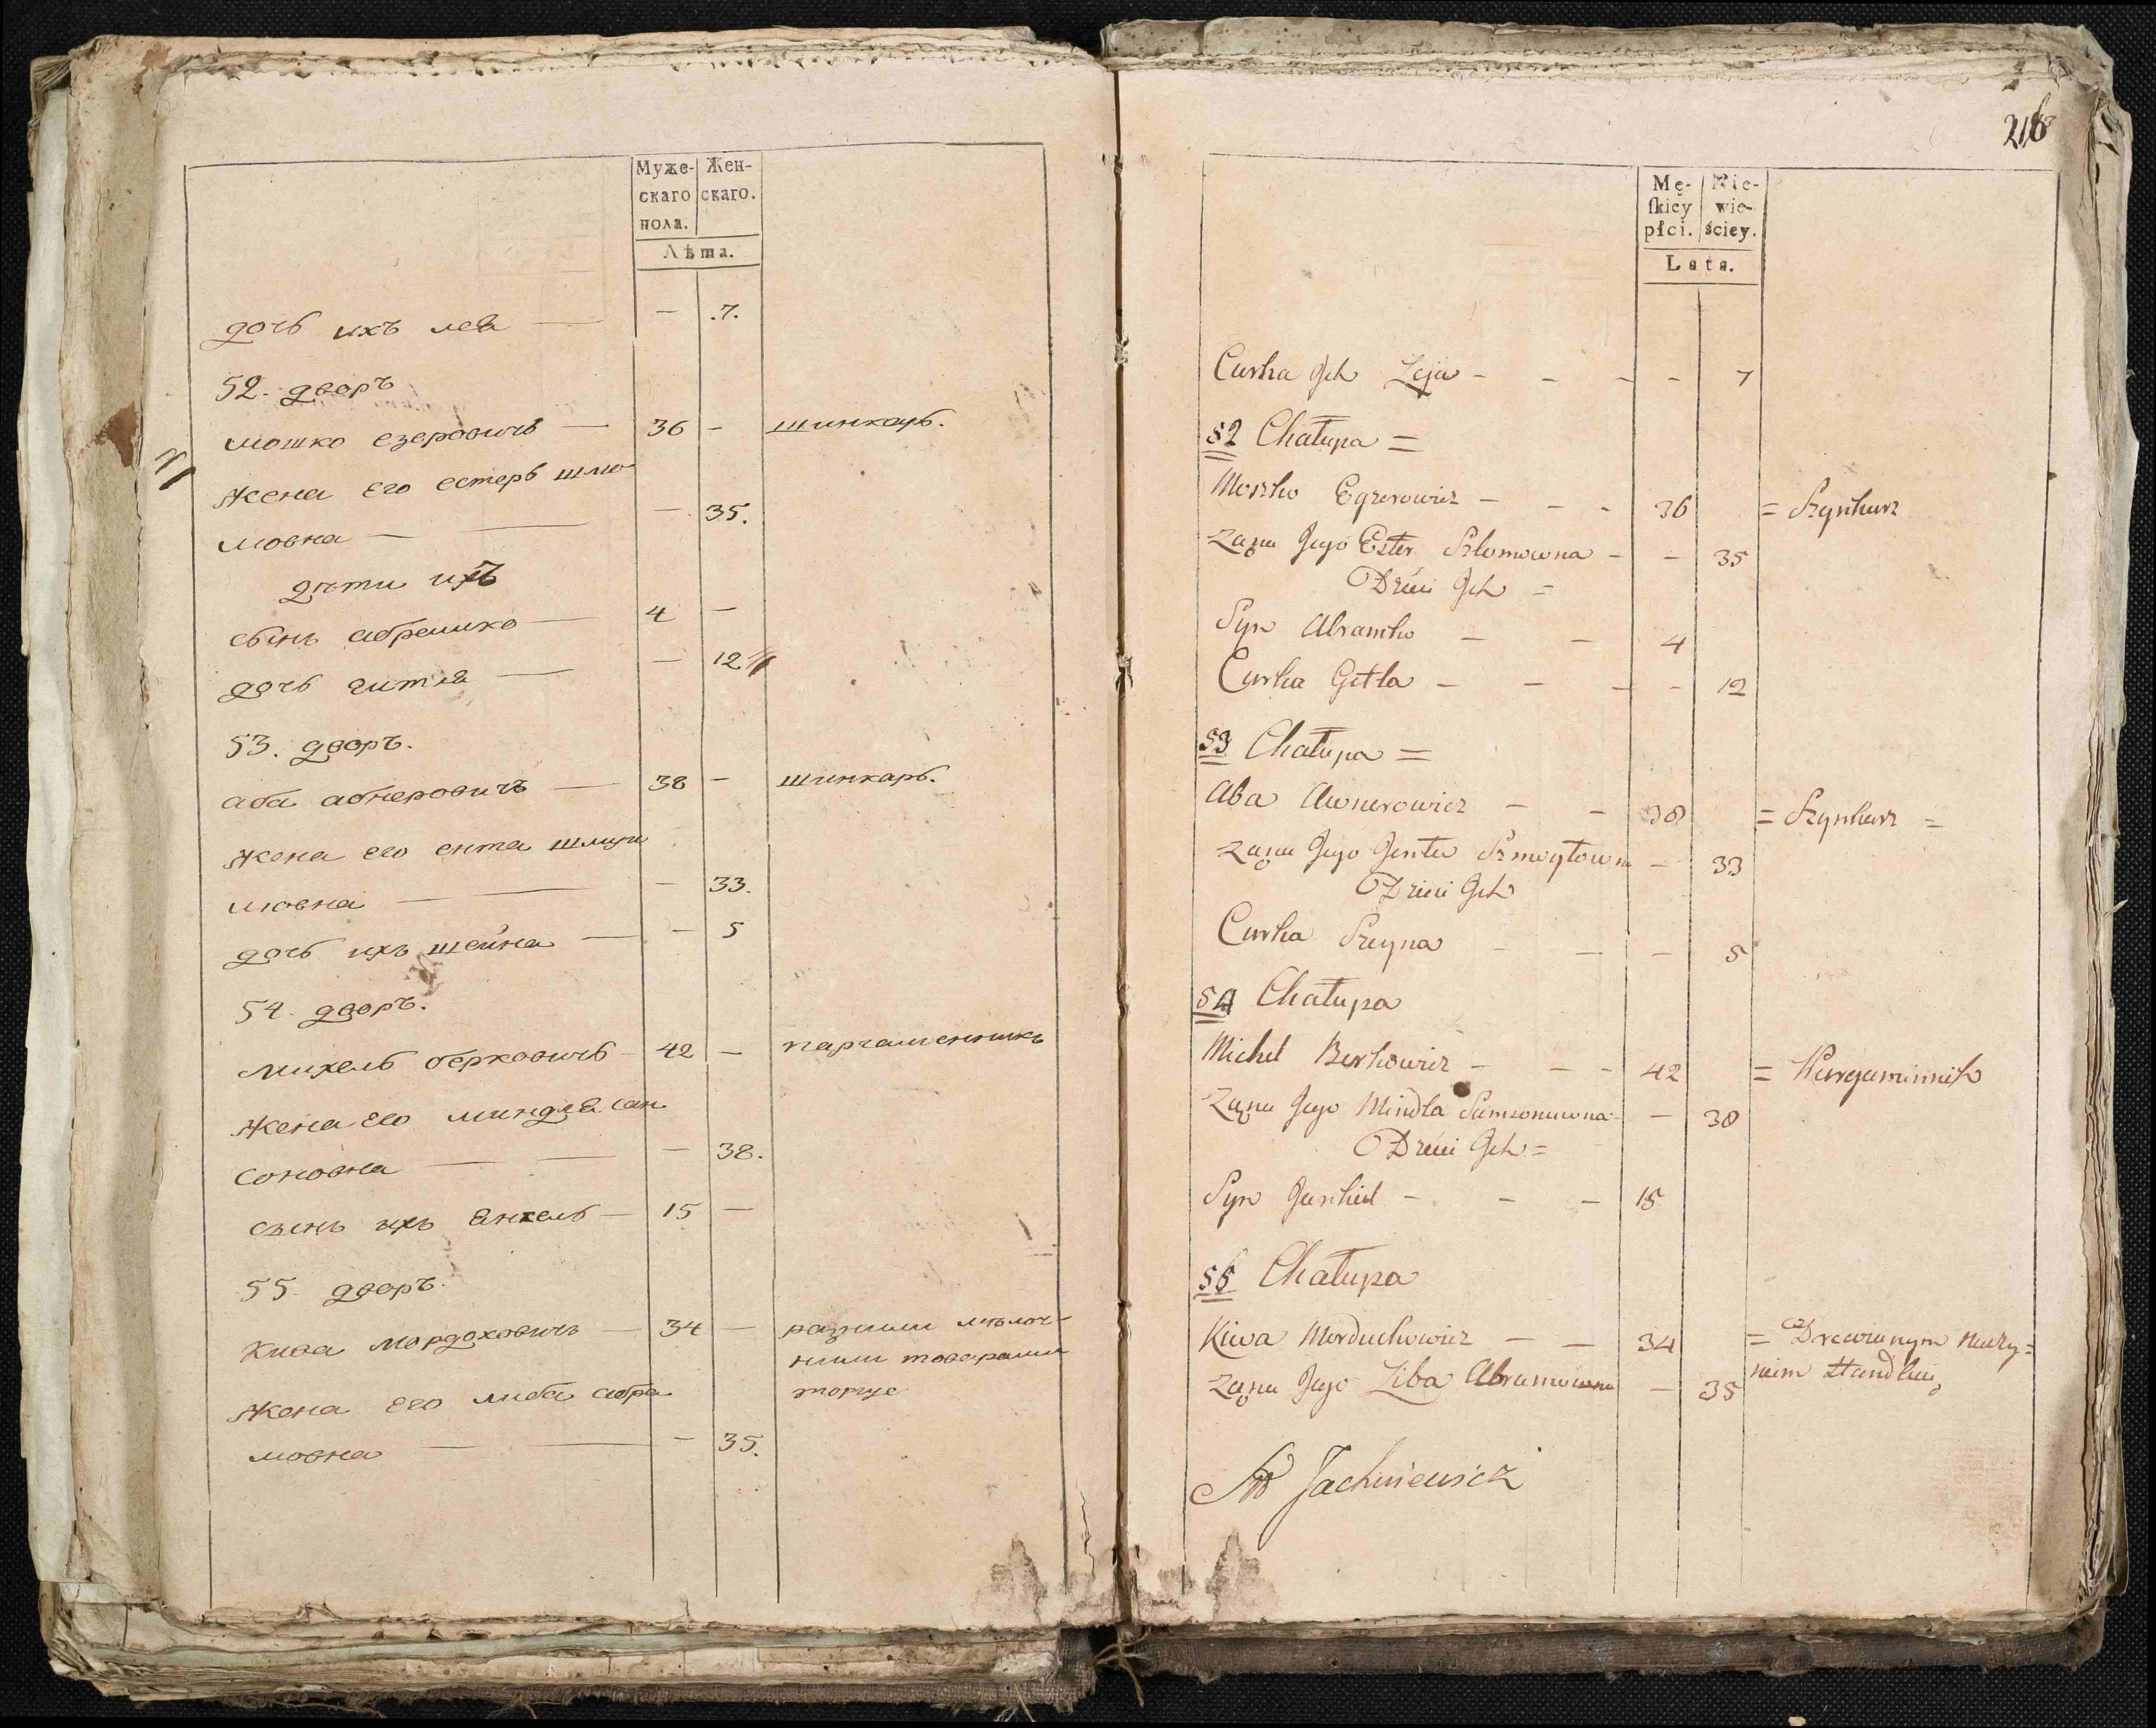 Муже- Жен-
скаго скаго.
пола.
Лѣта.
дочь ихъ лея — — .7.
52. дворъ
мошко езеровичъ — 36 — шинкарь.
жена его естерь шлио
мовна — — — 35.
дѣти ихъ
сынъ абрамко — 4 —
дочь гитля — — 12
53. дворъ.
аба авнеровичъ — 38 — шинкарь.
жена его ента шмуи
ловна — — 33.
дочь ихъ шейна — — 5
54. дворъ.
михель берковичъ — 42 — паргаменникъ
жена его миндля сам
соновна — — — 38.
сынъ ихъ янкель — 15 —
55. дворъ.
кива мордоховичъ — 34 — разними мѣлоч-
ними товарами
жена его либа абра торгуе
мовна — — — 35.
216
Mę- Nie-
ſkiey wie-
płci. ściey.
Lata.
Curka Jch Leja - - - - 7
52 Chałupa =
Moszko Eyzerowicz - - - 36 = Szynkarz
Zaona Jego Ester Szlomowna - - 35
Dzieci Jch =
Syn Abramko - - 4
Curka Gitla - - - - 12
53 Chałupa =
Aba Awnerowicz - - 38 = Szynkarz =
Zaona Jego Jenta Szmoyłowna - 33
Dzieci Jch
Curka Szeyna - - - 5
54 Chałupa
Michel Berkowicz - - - 42 = Pargaminnik
Zaona Jego Mindla Samsonowna - - 38
Dzieci Jch =
Syn Jankiel - - - 15
55 Chałupa
Kiwa Morduchowicz - - 34 = Drewianym naczy=
Zaona Jego Liba Abramowna - 35 niem Handluie
Jachniewicz